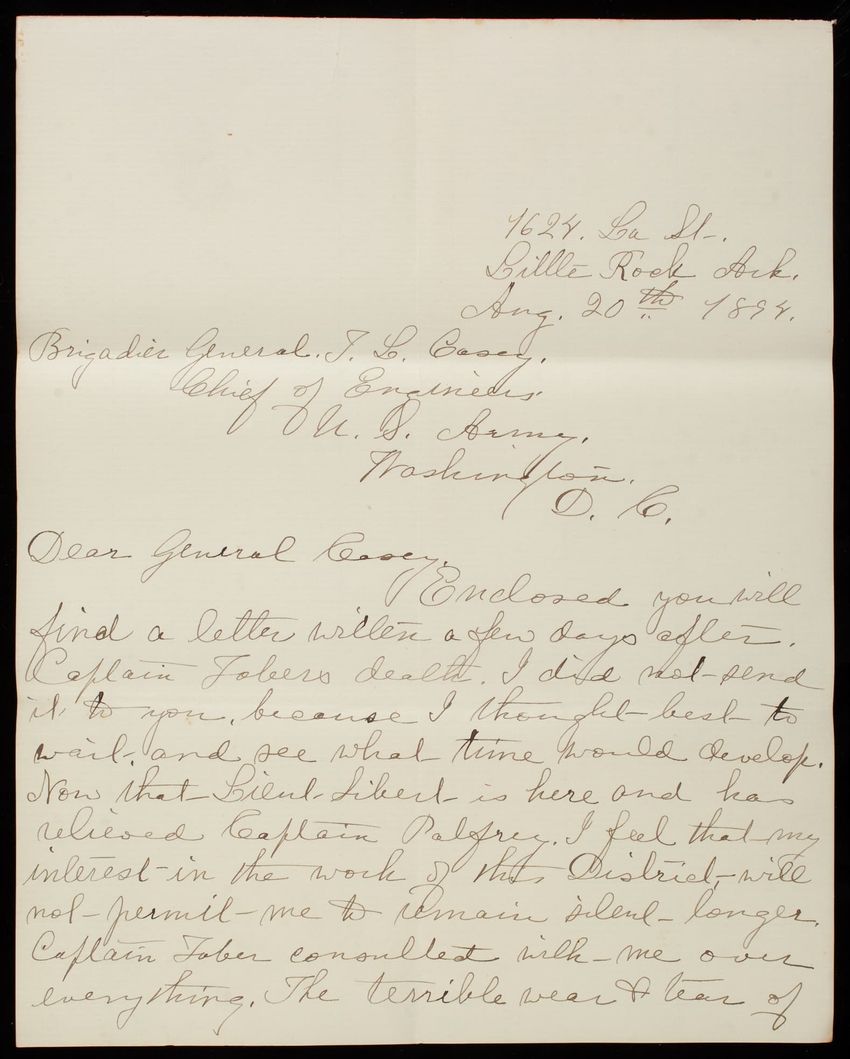 1624. La St.
Little Rock Ark.
Aug. 20th 1894.
Brigadier General. T. L. Casey.
Chief of Engineers
U. S. Army.
Washington.
D. C.
Dear General Casey.
Enclosed you will
find a letter written a few days after.
Captain Tabers death. I did not send
it to you, because I thought best to
wait, and see what time would develop.
Now that Lieut. Sibert is here and has
relieved Captain Palfrey. I feel that my
interest in the work of this District, will
not permit me to remain silent longer.
Captain Taber consulted with me over
everything. The terrible wear & tear of